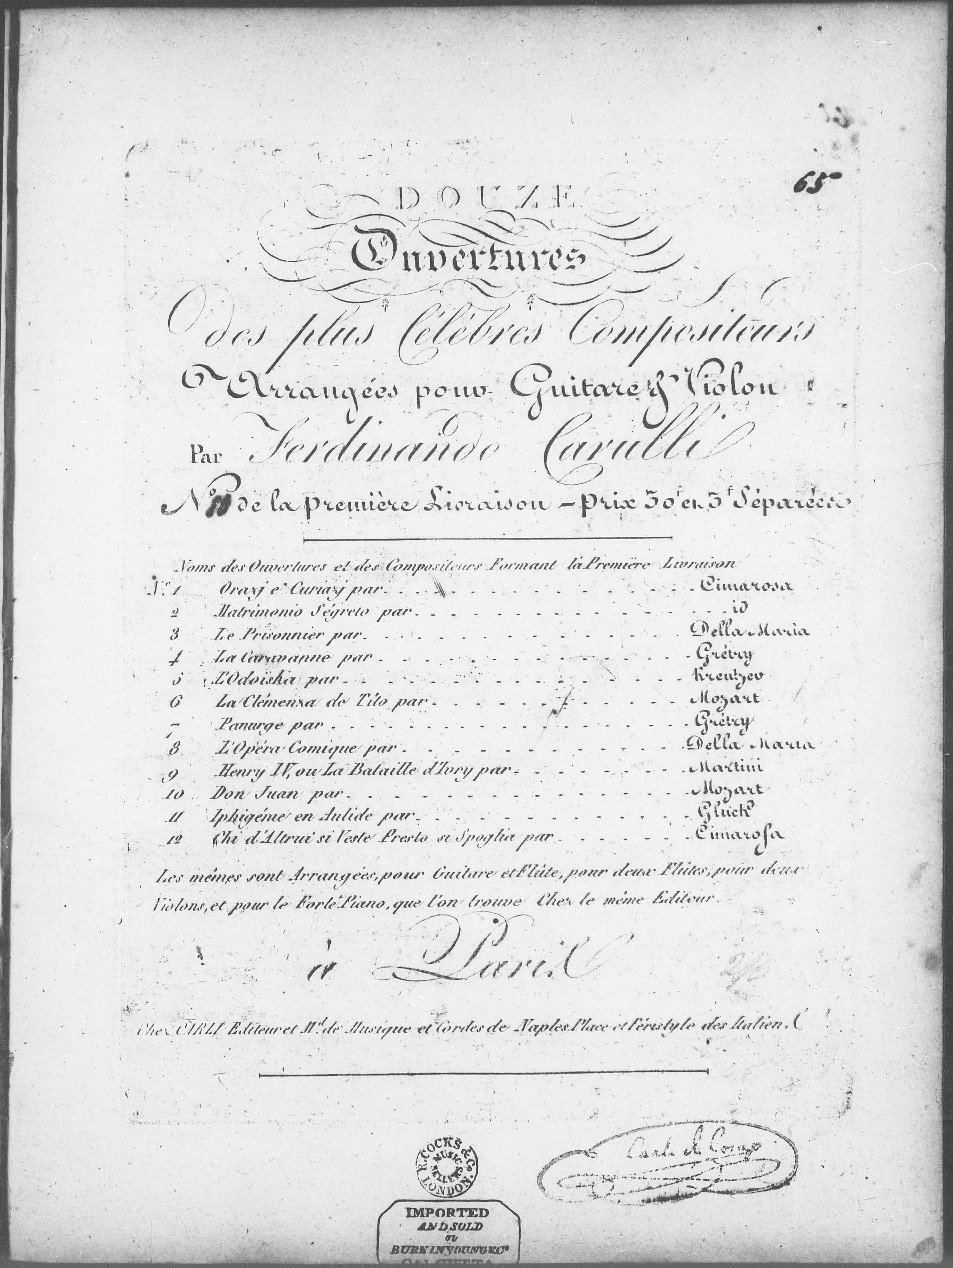 65
DOUZE
Ouvertures
des plus Célèbres Compositeurs
Arrangées pour Guitare & Violon
Par Ferdinando Carulli
No. de la première Livraison – prix 30f en 3f Séparées
Noms des Ouvertures et des Compositeurs Formant la Première Livraison
No. 1 Orazj e Curiazj par Cimarosa
2 Matrimonio Ségreto par id
3 Le Prisonnier par Della Maria
4 La Caravanne par Grétry
5 L'Odoiska par Kreutzer
6 La Clémenza de Tito par Mozart
7 Panurge par Grétry
8 L'Opéra Comique par Della Maria
9 Henry IV, ou La Bataille d'Ivry par Martini
10 Don Juan par Mozart
11 Iphigénie en Aulide par Gluck
12 Chi d'Altrui si Veste Presto si Spoglia par Cimarosa
Les mêmes sont Arrangées, pour Guitare et Flûte, pour deux Flûtes, pour deux
Violons, et pour le Forté Piano, que l'on trouve Chez le même Editeur
à Paris
Chez CARLI Editeur et Md. de Musique et Cordes de Naples Place et Péristyle des Italiens
R. COCKS & Co. MUSIC SELLERS LONDON.
IMPORTED
AND SOLD
BY
BURKINYOUNG & Co
CALCUTTA